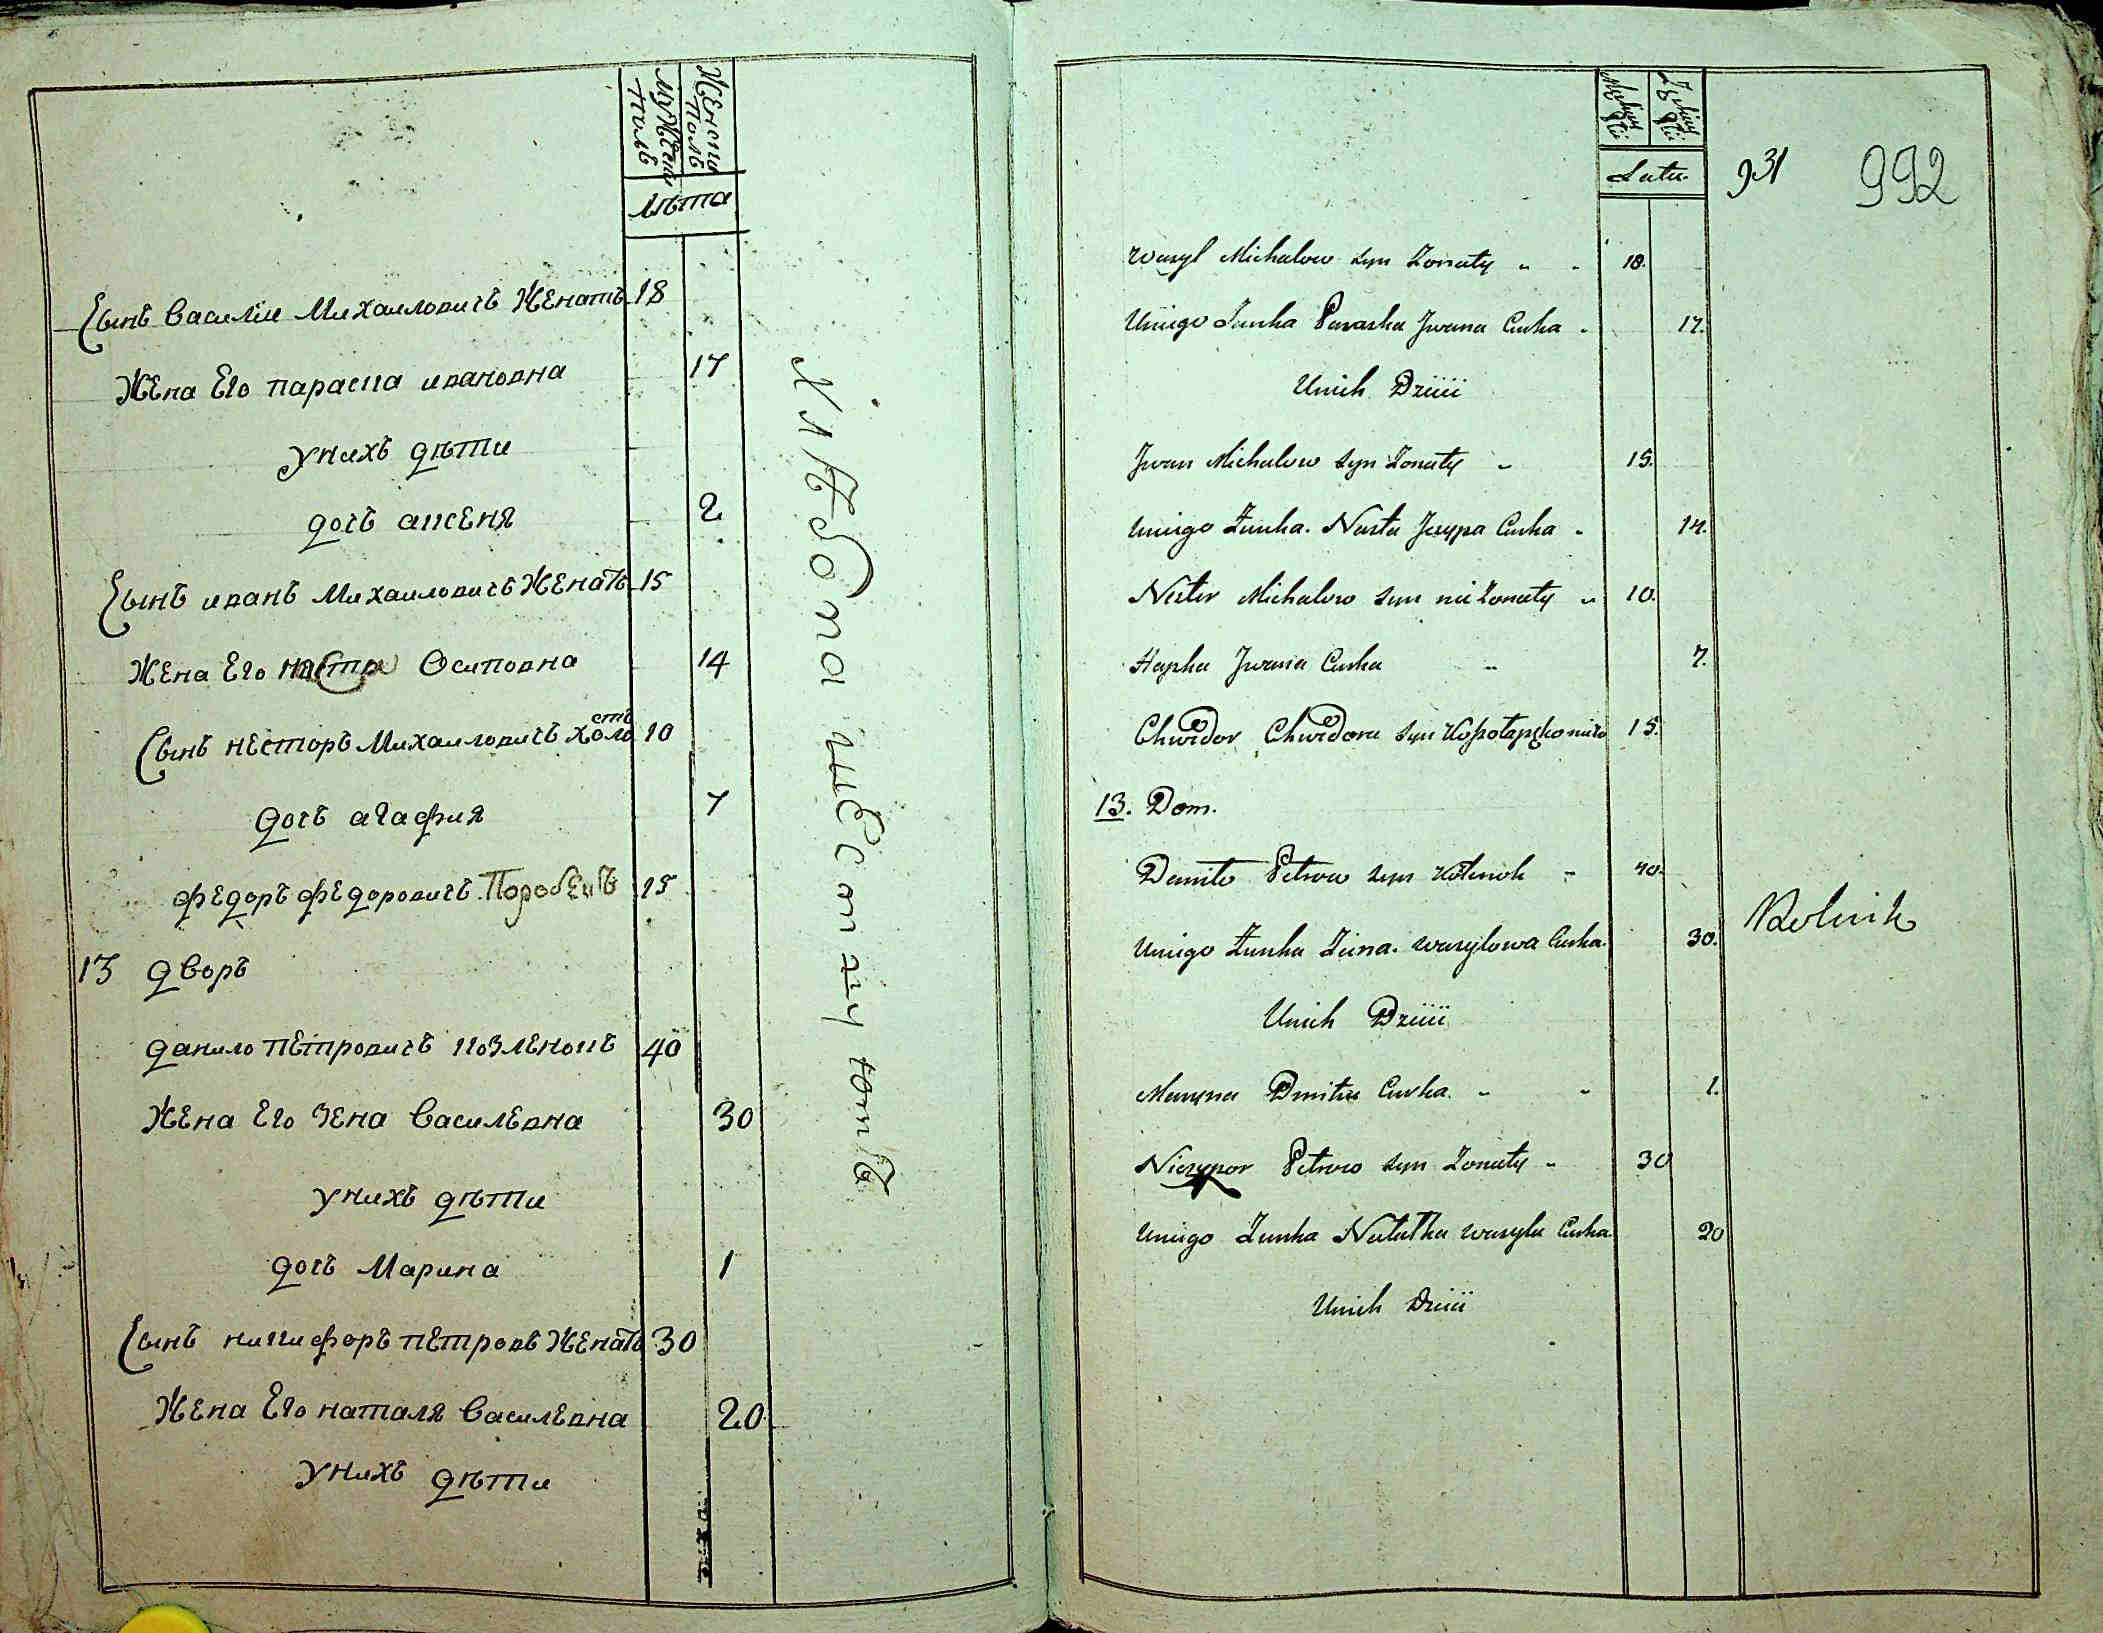 Мужеск: полъ
Женски полъ
лѣта
Сынъ Василии Михаиловичъ Женатъ 18
Жена Его параска ивановна 17
унихъ дѣти
дочъ аксеня 2
Сынъ иванъ Михаиловичъ Женатъ 15
Жена Его настя Осиповна 14
Сынъ несторъ Михаиловичъ холостъ 10
дочъ агафия 7
федоръ федоровичъ Поробекъ 15
13 дворъ
данило петровичъ козленокъ 40
Жена Его Зена Василевна 30
унихъ дѣти
дочъ Марина 1
Сынъ никифоръ петровъ Женатъ 30
Жена Его наталя Василевна 20
унихъ дѣти
Хлѣбопашестчуютъ
Latu.
931 992
Wasyl Michalow syn Żonaty 18.
Uniego Żunka Paraska Jwana Curka 17.
Unich Dzieii
Jwan Michalow syn Żonaty 15.
Uniego Żunka. Nasta Jesypa Curka 14.
Nester Michalow syn nieżonaty 10.
Hapka Jwana Curka 7.
Chwedor Chwedora syn 15.
13. Dom.
Danito Petrow syn Kozlenok 40.
Uniego Żunka Ziena. Wasylowa Curka. 30.
Rolnik
Unich Dzieii
Maryna Dmitra Curka. 1.
Niczypor Petrow syn Żonaty 30
Uniego Żunka Natałka Wasyla Curka. 20
Unich Dzieii